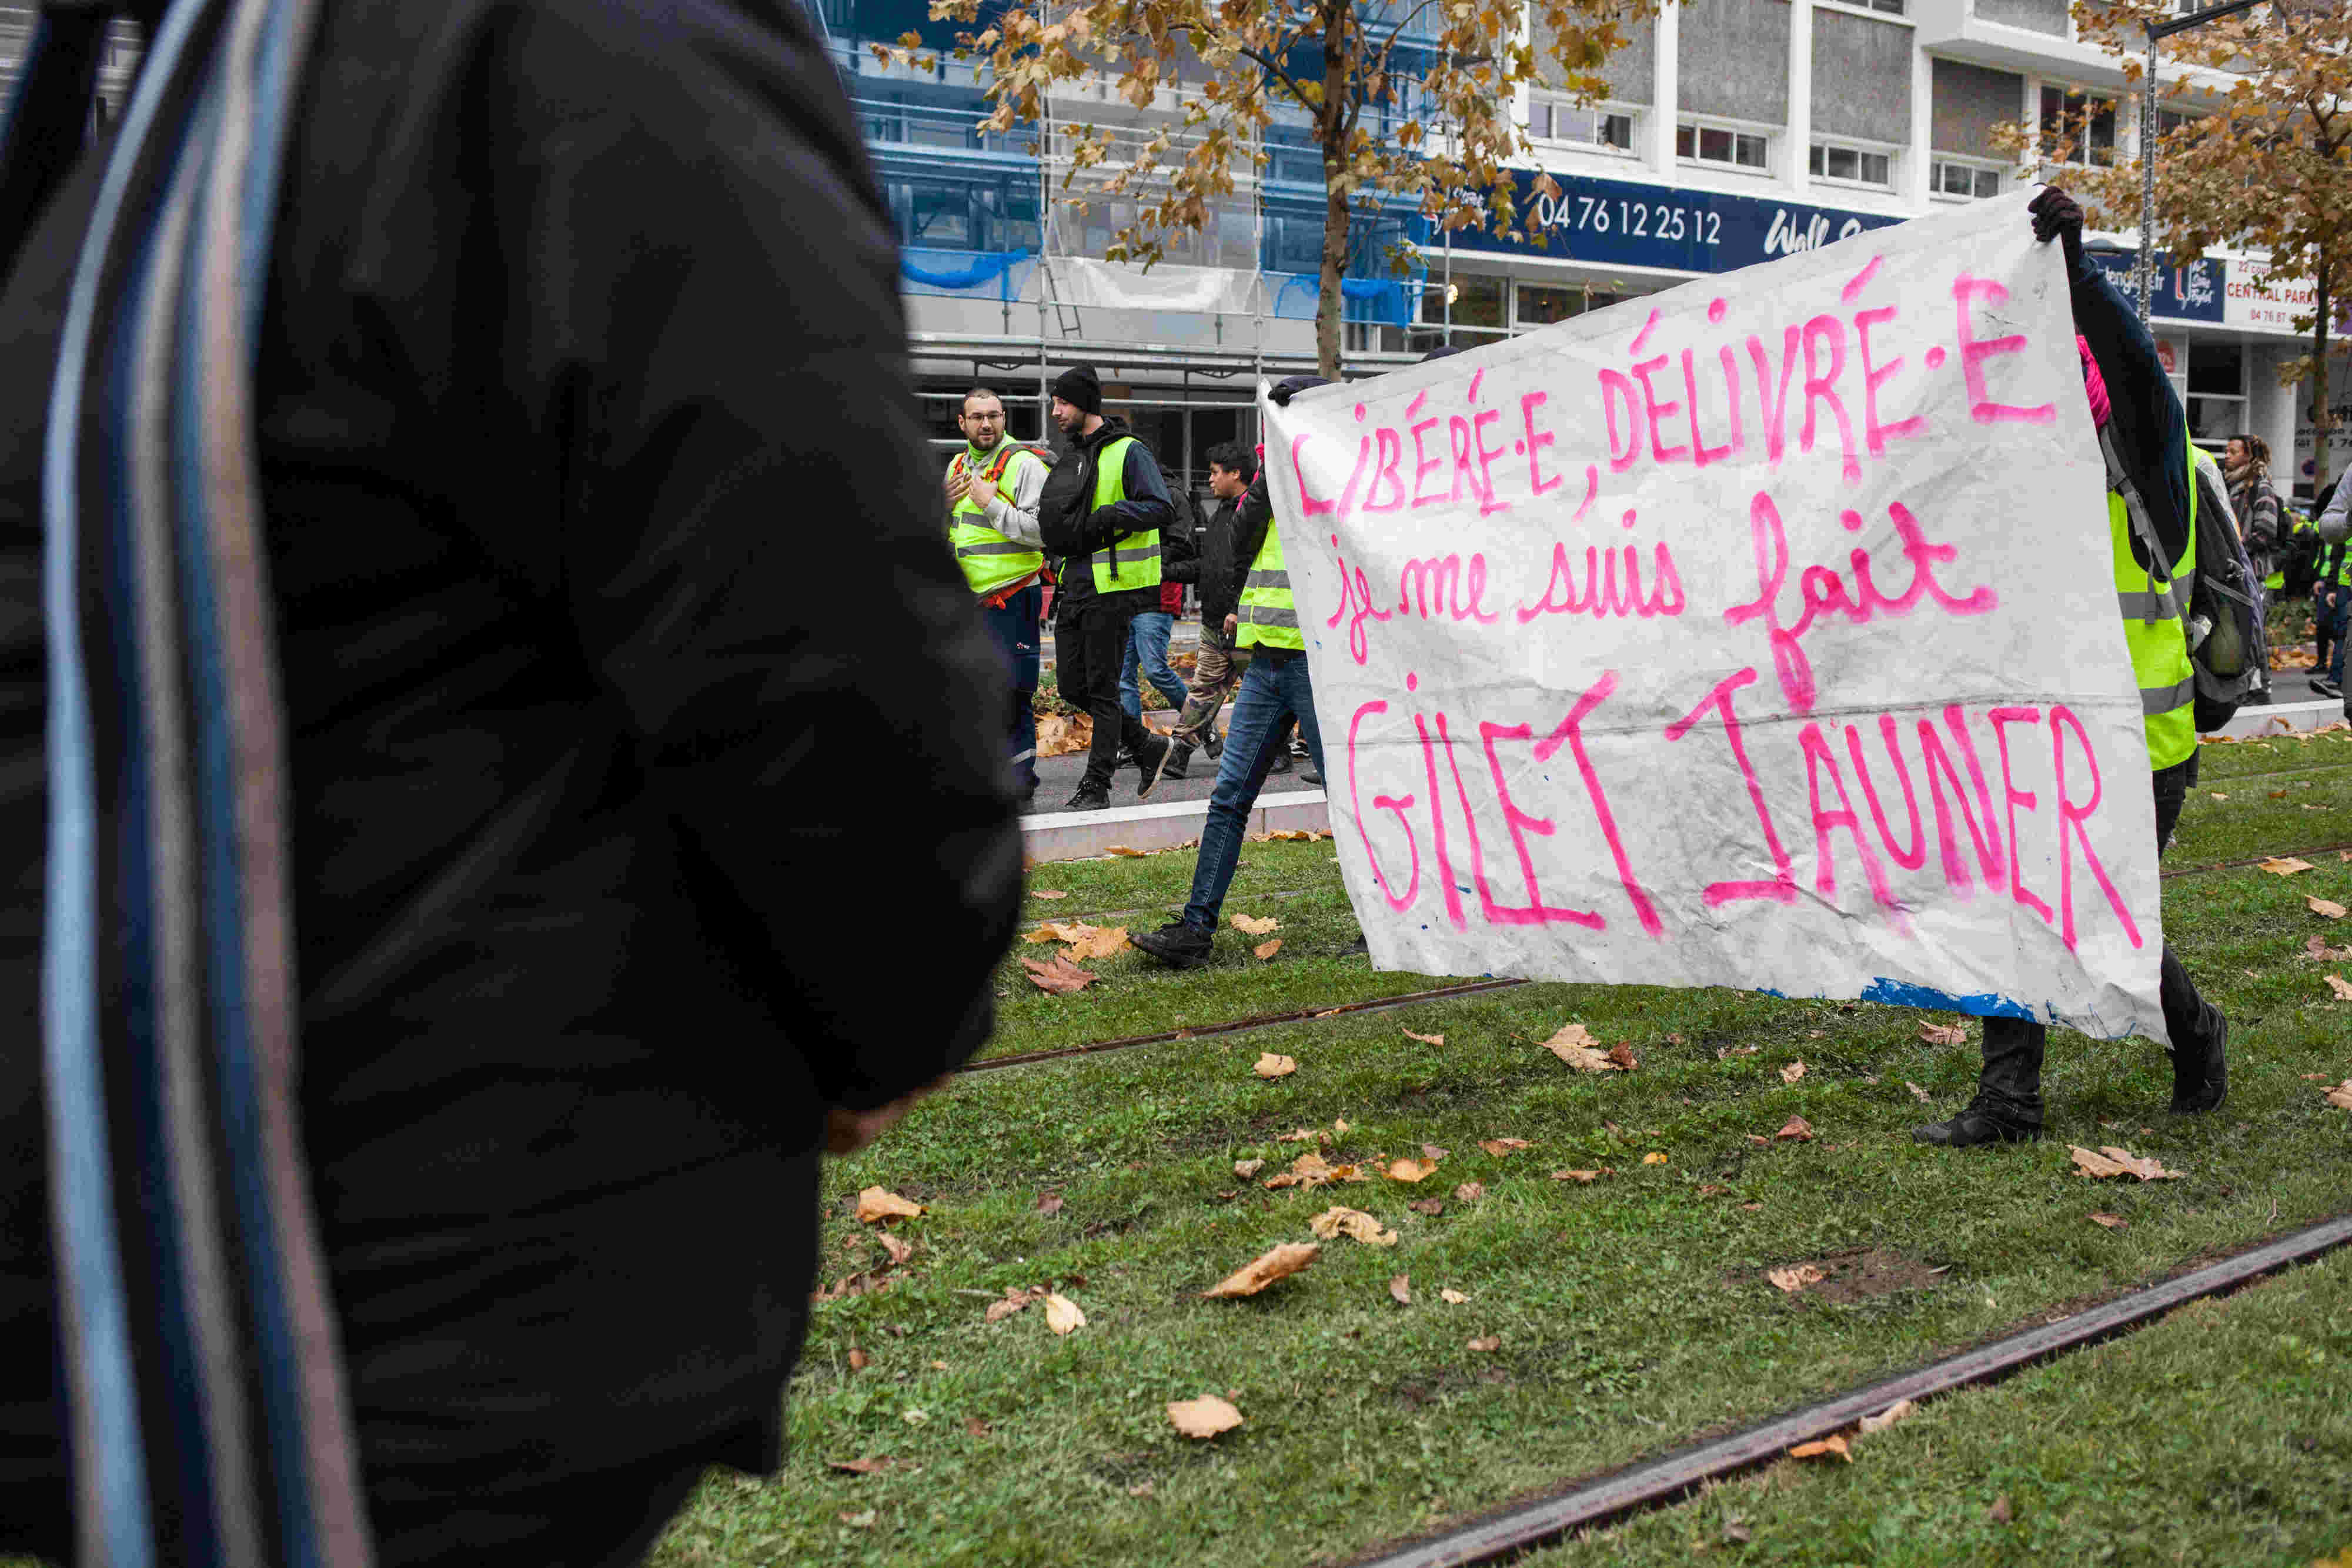 04 76 12 25 12
Wall
22
CENTRAL PARK
04 76 87
LIBÉRÉ·E, DÉLIVRÉ·E
je me suis fait
GILET JAUNER